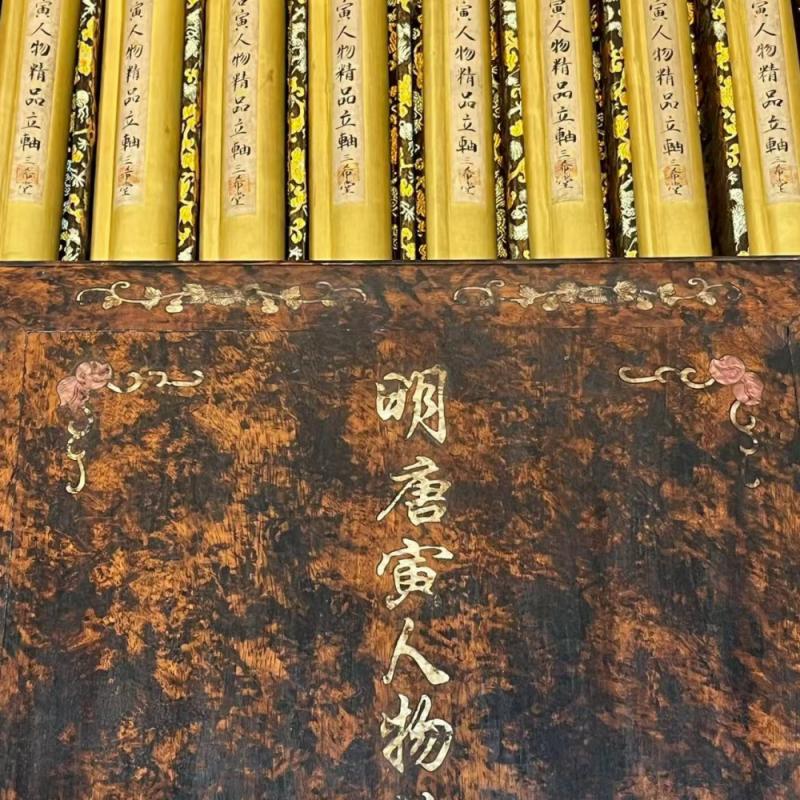 寅人物精品立軸三希堂
寅人物精品立軸三希堂
寅人物精品立軸三希堂
寅人物精品立軸三希堂
寅人物精品立軸三希堂
寅人物精品立軸三希堂
寅人物精品立軸三希堂
寅人物精品立軸三希堂
明唐寅人物